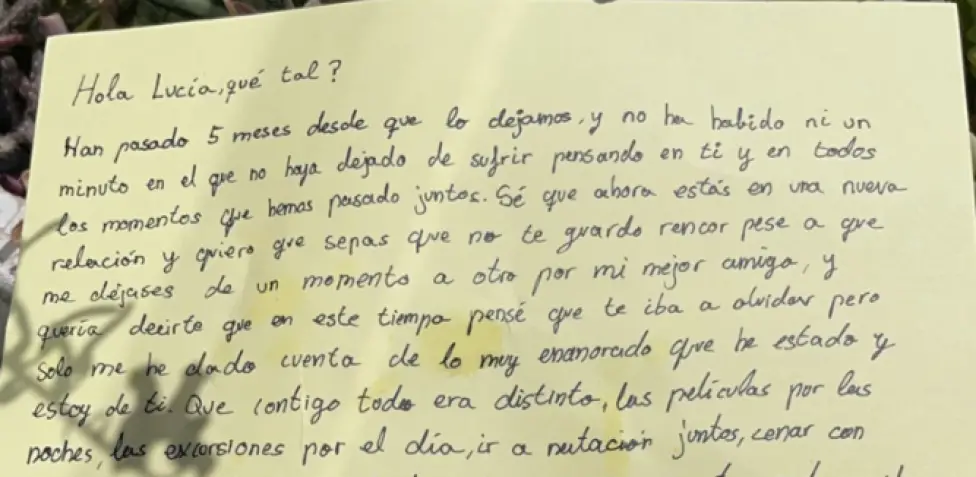 Hola Lucía, qué tal?
Han pasado 5 meses desde que lo dejamos, y no ha habido ni un
minuto en el que no haya dejado de sufrir pensando en ti y en todos
los momentos que hemos pasado juntos. Sé que ahora estás en una nueva
relación y quiero que sepas que no te guardo rencor pese a que
me dejases de un momento a otro por mi mejor amigo, y
quería decirte que en este tiempo pensé que te iba a olvidar pero
solo me he dado cuenta de lo muy enamorado que he estado y
estoy de ti. Que contigo todo era distinto, las películas por las
noches, las excorsiones por el día, ir a natación juntos, cenar con